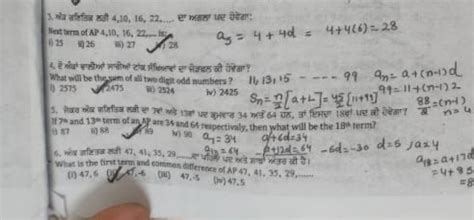 3. ਅੰਕ ਗਣਿਤਿਕ ਲੜੀ 4,10, 16, 22,.... ਦਾ ਅਗਲਾ ਪਦ ਹੋਵੇਗਾ:
Next term of AP 4,10, 16, 22,.... is:
i) 25 ii) 26 iii) 27 28
a₅ = 4 + 4d = 4+4(6) = 28
4. ਦੋ ਅੰਕਾਂ ਵਾਲੀਆਂ ਸਾਰੀਆਂ ਟਾਂਕ ਸੰਖਿਆਵਾਂ ਦਾ ਜੋੜਫਲ ਕੀ ਹੋਵੇਗਾ?
What will be the sum of all two digit odd numbers ?
i) 2575 2475 iii) 2524 iv) 2425
11, 13, 15 ---- 99 aₙ = a+(n-1)d
Sₙ = n/2 [a+L] = 45/2 [11+99] 99 = 11+(n-1)2
5. ਜੇਕਰ ਅੰਕ ਗਣਿਤਿਕ ਲੜੀ ਦਾ 7ਵਾਂ ਅਤੇ 13ਵਾਂ ਪਦ ਕ੍ਰਮਵਾਰ 34 ਅਤੇ 64 ਹਨ, ਤਾਂ ਇਸਦਾ 18ਵਾਂ ਪਦ ਕੀ ਹੋਵੇਗਾ?
If 7th and 13th term of an AP are 34 and 64 respectively, then what will be the 18th term?
i) 87 ii) 88 89 iv) 90
a₇ = 34 a+6d = 34
a₁₃ = 64 a+12d = 64 -6d = -30 d = 5, a = 4
6. ਅੰਕ ਗਣਿਤਿਕ ਲੜੀ 47, 41, 35, 29, ਦਾ ਪਹਿਲਾ ਪਦ ਅਤੇ ਸਾਂਝਾ ਅੰਤਰ ਕੀ ਹੈ।
What is the first term and common difference of AP 47, 41, 35, 29,......
(i) 47, 6 47, -6 (iii) 47,-5 (iv) 47,5
a₁₈ = a+17d
= 4+85